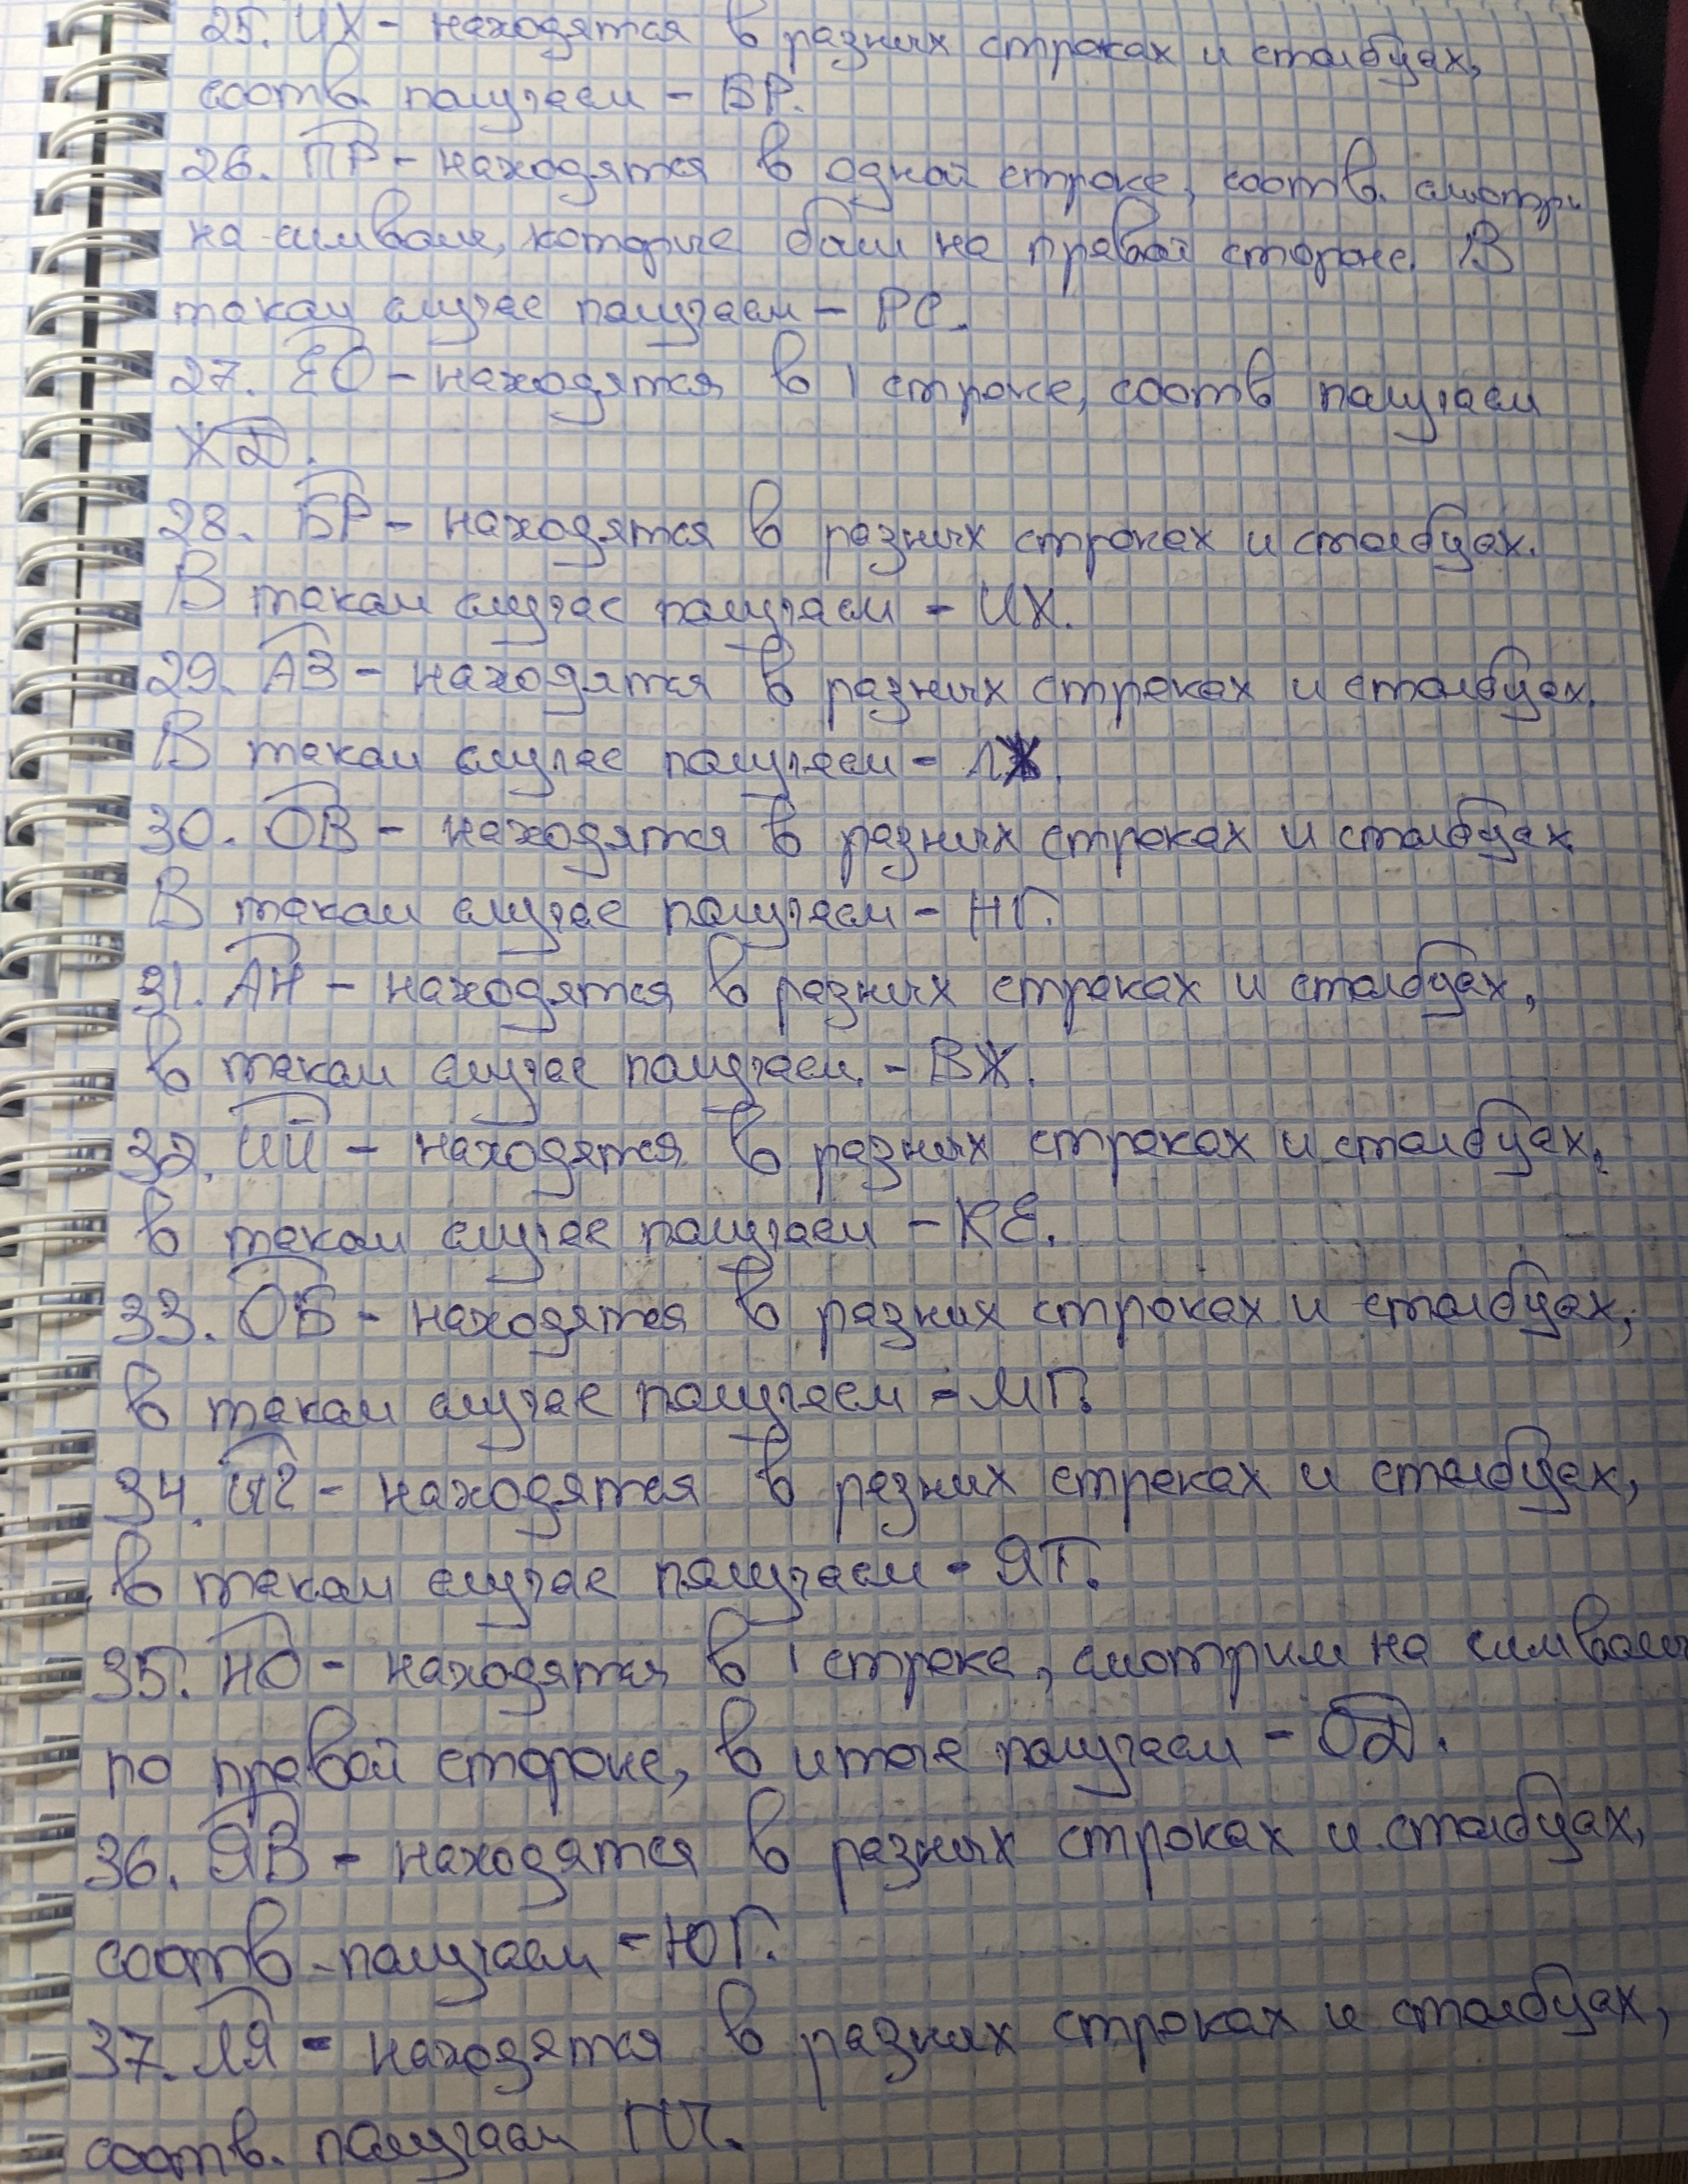 25. ИХ - находятся в разных строках и столбцах,
соотв. получаем - БР.
26. ПР - находятся в одной строке, соотв. смотри
на символы, которые были на правой стороне. В
таком случае получаем - РС.
27. ЕО - находятся в 1 строке, соотв получаем
ЖД.
28. БР - находятся в разных строках и столбцах.
В таком случае получаем - ИХ.
29. АЗ - находятся в разных строках и столбцах.
В таком случае получаем -
30. ОВ - находятся в разных строках и столбцах
В таком случае получаем - НГ.
31. АН - находятся в разных строках и столбцах,
в таком случае получаем - ВЖ.
32. ИЙ - находятся в разных строках и столбцах,
в таком случае получаем - КЕ.
33. ОБ - находятся в разных строках и столбцах,
в таком случае получаем - МГ.
34. - находятся в разных строках и столбцах,
в таком случае получаем - ЯТ.
35. НО - находятся в 1 строке, смотрим на символы
по правой стороне, в итоге получаем - ОД.
36. ЯВ - находятся в разных строках и столбцах,
соотв. получаем - ЮГ.
37. ЛЯ - находятся в разных строках и столбцах,
соотв. получаем